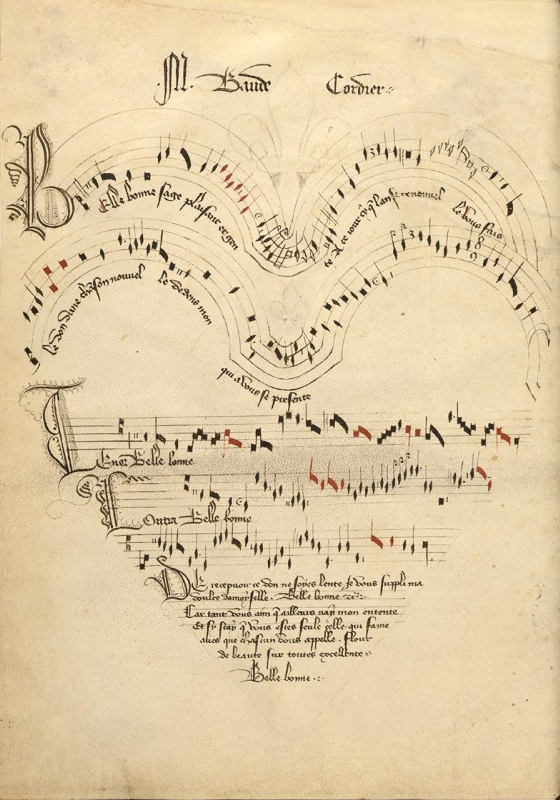 M. Baude Cordier
Belle bonne sage plaisant et gen
te A ce jour cy q lan se renouvel
le vous fais
le don dune chanson nouvel
le dedens mon
qui a vous se presente
Tenor Belle bonne
Contra Belle bonne
De recepvoir ce don ne soyes lente Je vous suppli ma
doulce damoyselle. Belle bonne
Car tant vous aim q aillours nay mon entente
Et sy scay q vous estes seule celle qui fame
aves que chascun vous appelle. Flour
de beaute sur toutes excellente
Belle bonne.